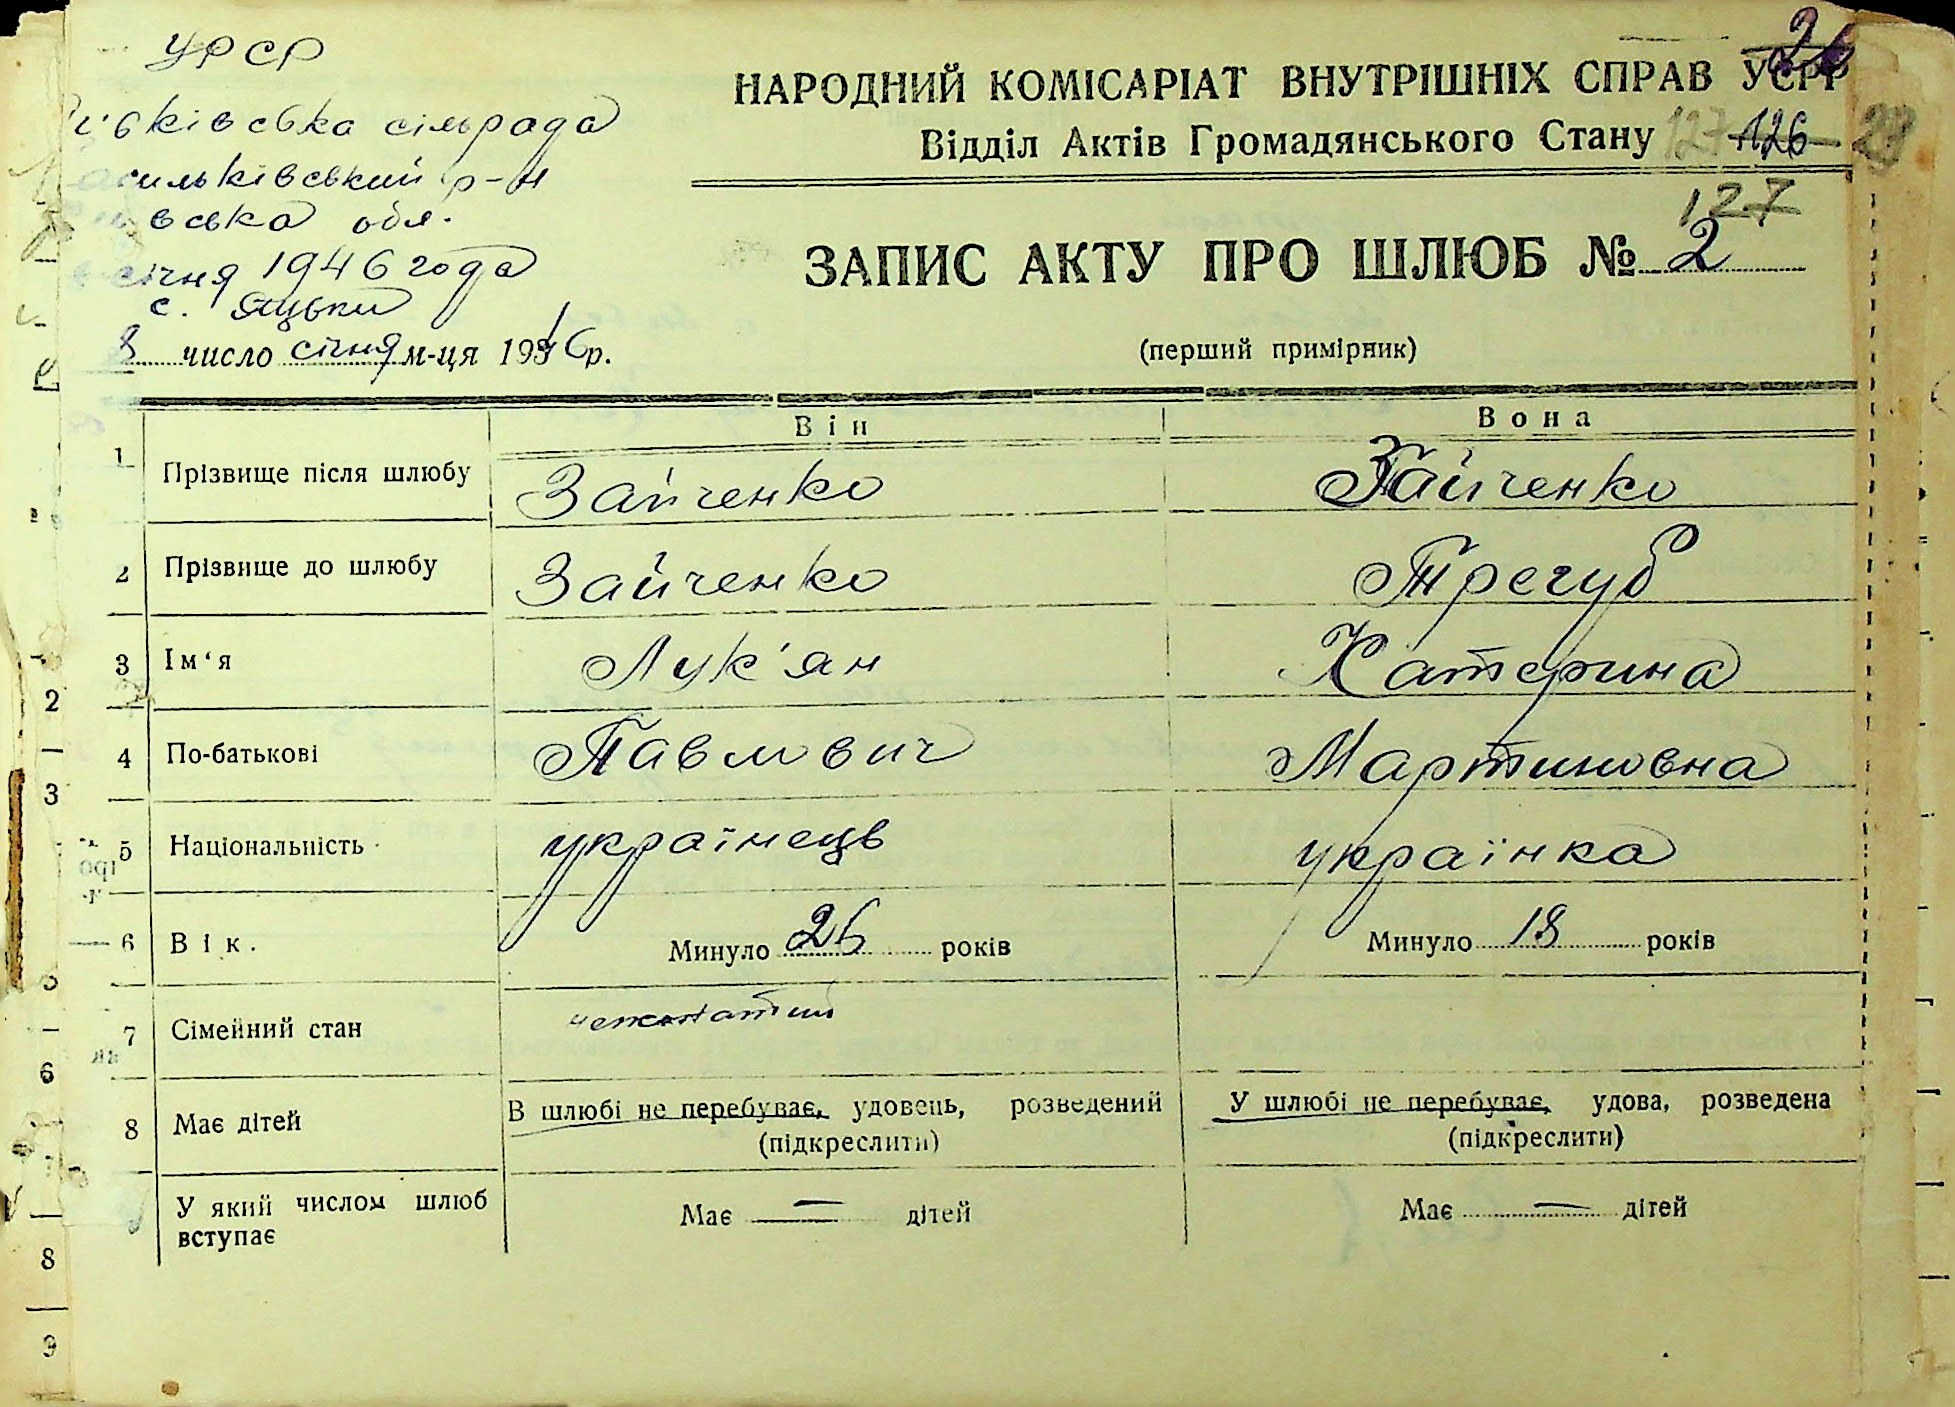 УРСР
сільрада
р-н
обл.
січня 1946 года
с. Яцьки
8 число січня м-ця 1946 р.
НАРОДНИЙ КОМІСАРІАТ ВНУТРІШНІХ СПРАВ УСРР
Відділ Актів Громадянського Стану 127 126 28
127
ЗАПИС АКТУ ПРО ШЛЮБ № 2
(перший примірник)
Він Вона
1 Прізвище після шлюбу Зайченко Зайченко
2 Прізвище до шлюбу Зайченко Трегуб
3 Ім'я Лук'ян Катерина
4 По-батькові Павлович Мартиновна
5 Національність українець українка
6 Вік. Минуло 26 років Минуло 18 років
7 Сімейний стан нежонатий
8 Має дітей В шлюбі не перебуває, удовець, розведений У шлюбі не перебуває, удова, розведена
(підкреслити) (підкреслити)
У який числом шлюб вступає Має — дітей Має — дітей
2
3
5
6
8
9